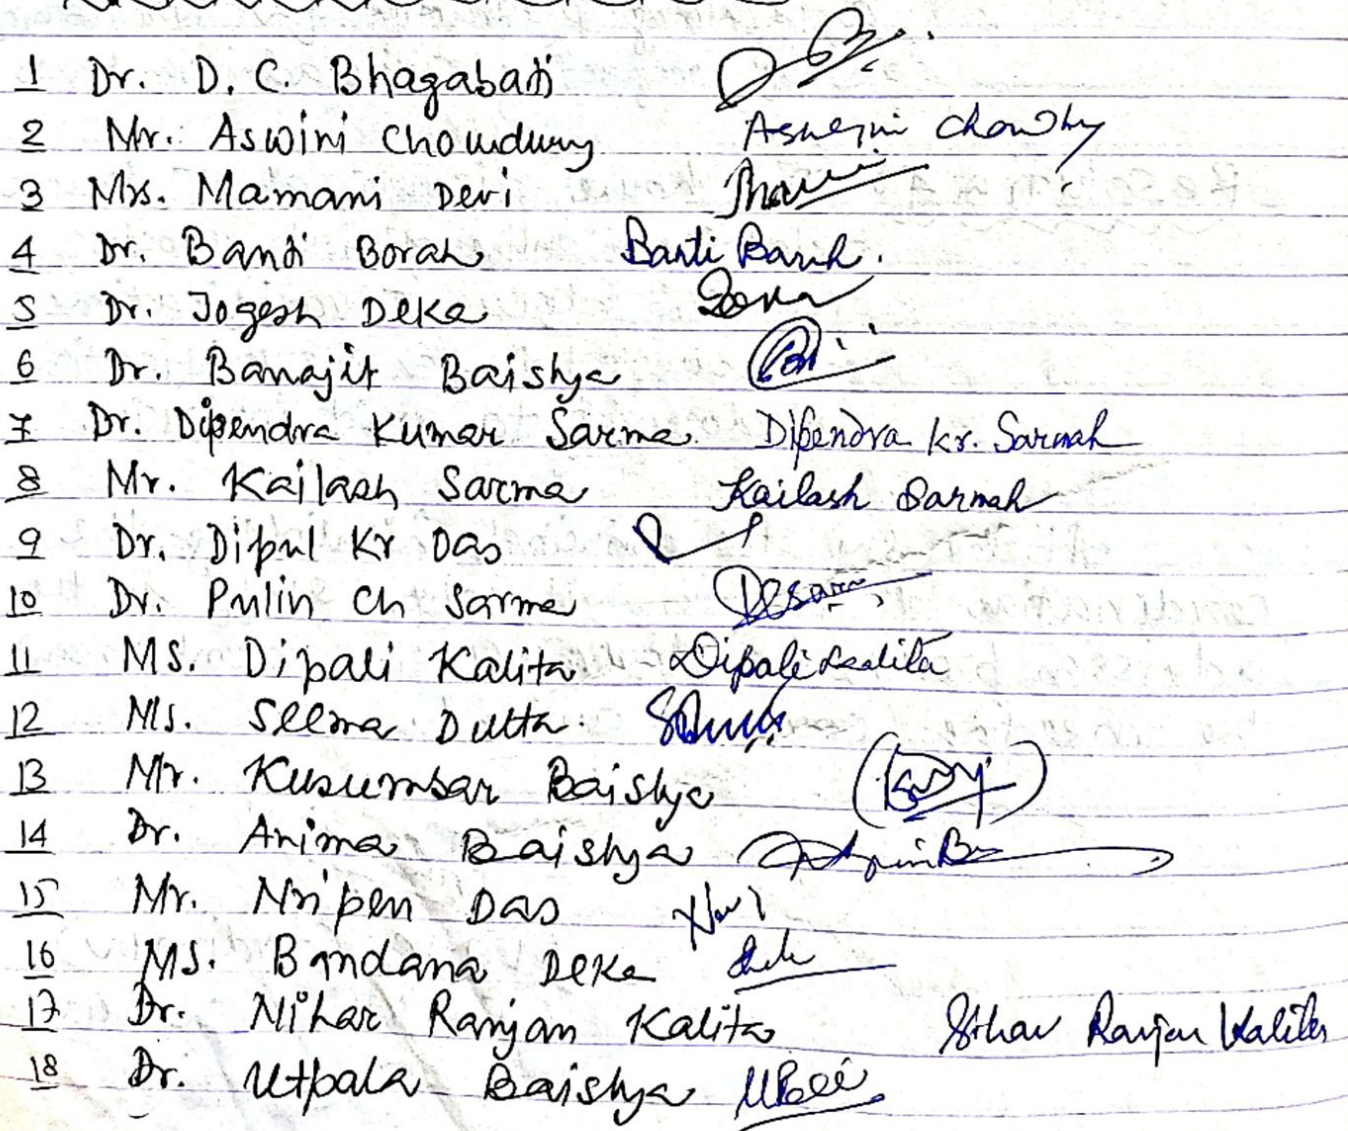 1 Dr. D. C. Bhagabati
2 Mr. Aswini Choudhury Aswini Chowdhy
3 Mrs. Mamani Devi
4 Dr. Banti Borah Banti Barah.
5 Dr. Jogesh Deka Deka
6 Dr. Banajit Baishya
7 Dr. Dipendra Kumar Sarma Dipendra Kr. Sarmah
8 Mr. Kailash Sarma Kailash Sarmah
9 Dr. Dipul Kr Das
10 Dr. Pulin Ch Sarma
11 MS. Dipali Kalita Dipali Kalita
12 Ms. Seema Dutta
13 Mr. Kusumbar Baishya
14 Dr. Anima Baishya
15 Mr. Nripen Das
16 MS. Bandana Deka
17 Dr. Nihar Ranjan Kalita Nihar Ranjan Kalita
18 Dr. Utpala Baishya